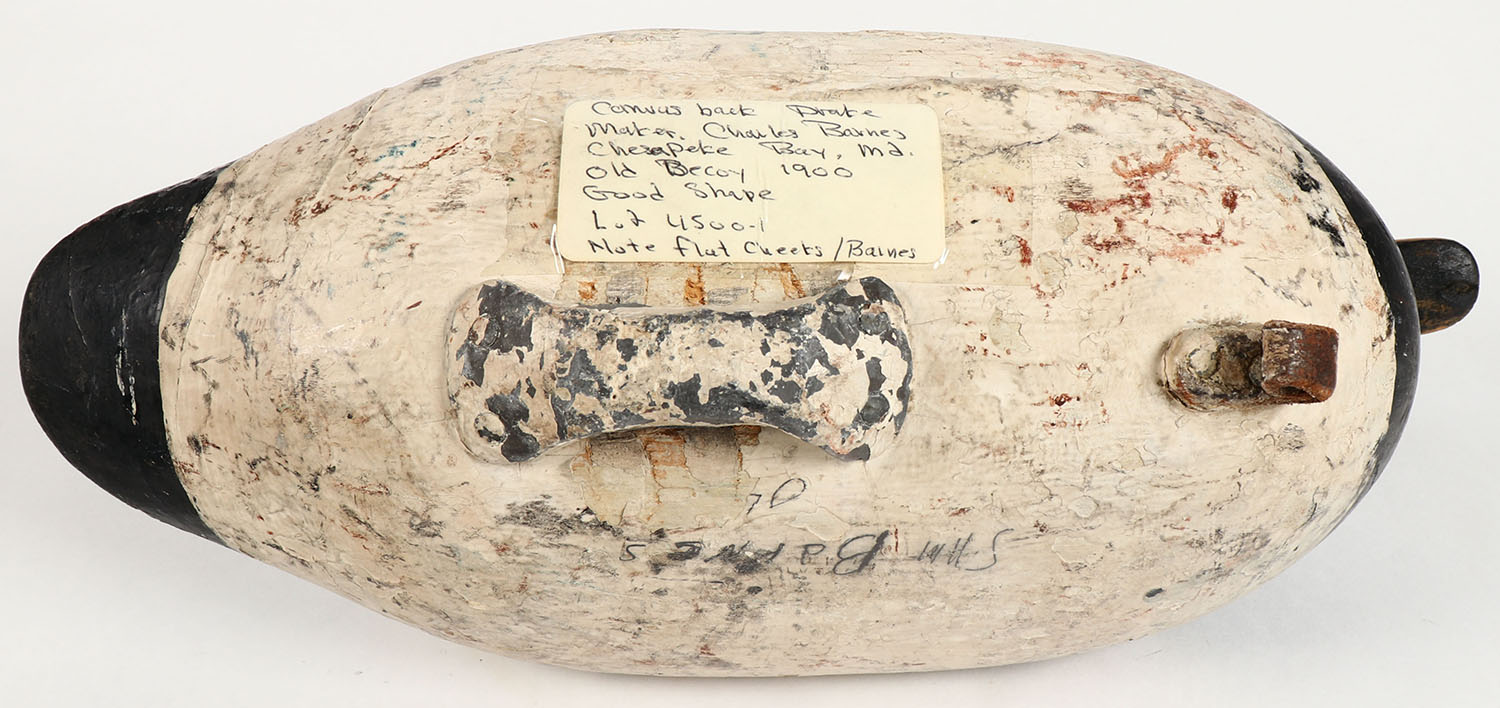 Canvas back Drake
Maker. Charles Barnes
Chesapeke Bay, Md.
Old Becoy 1900
Good Shape
Lot 4500-1
Note flat Cheeks / Barnes
Barnes